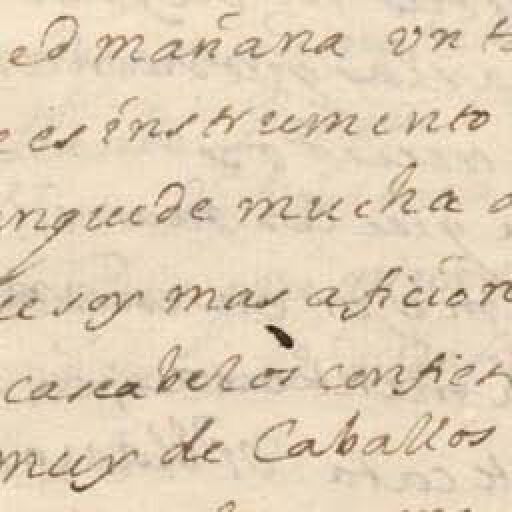 ed mañana vn
es instrumento
unque de mucha
ue soy mas aficion
cascabelos confies
muy de Caballos